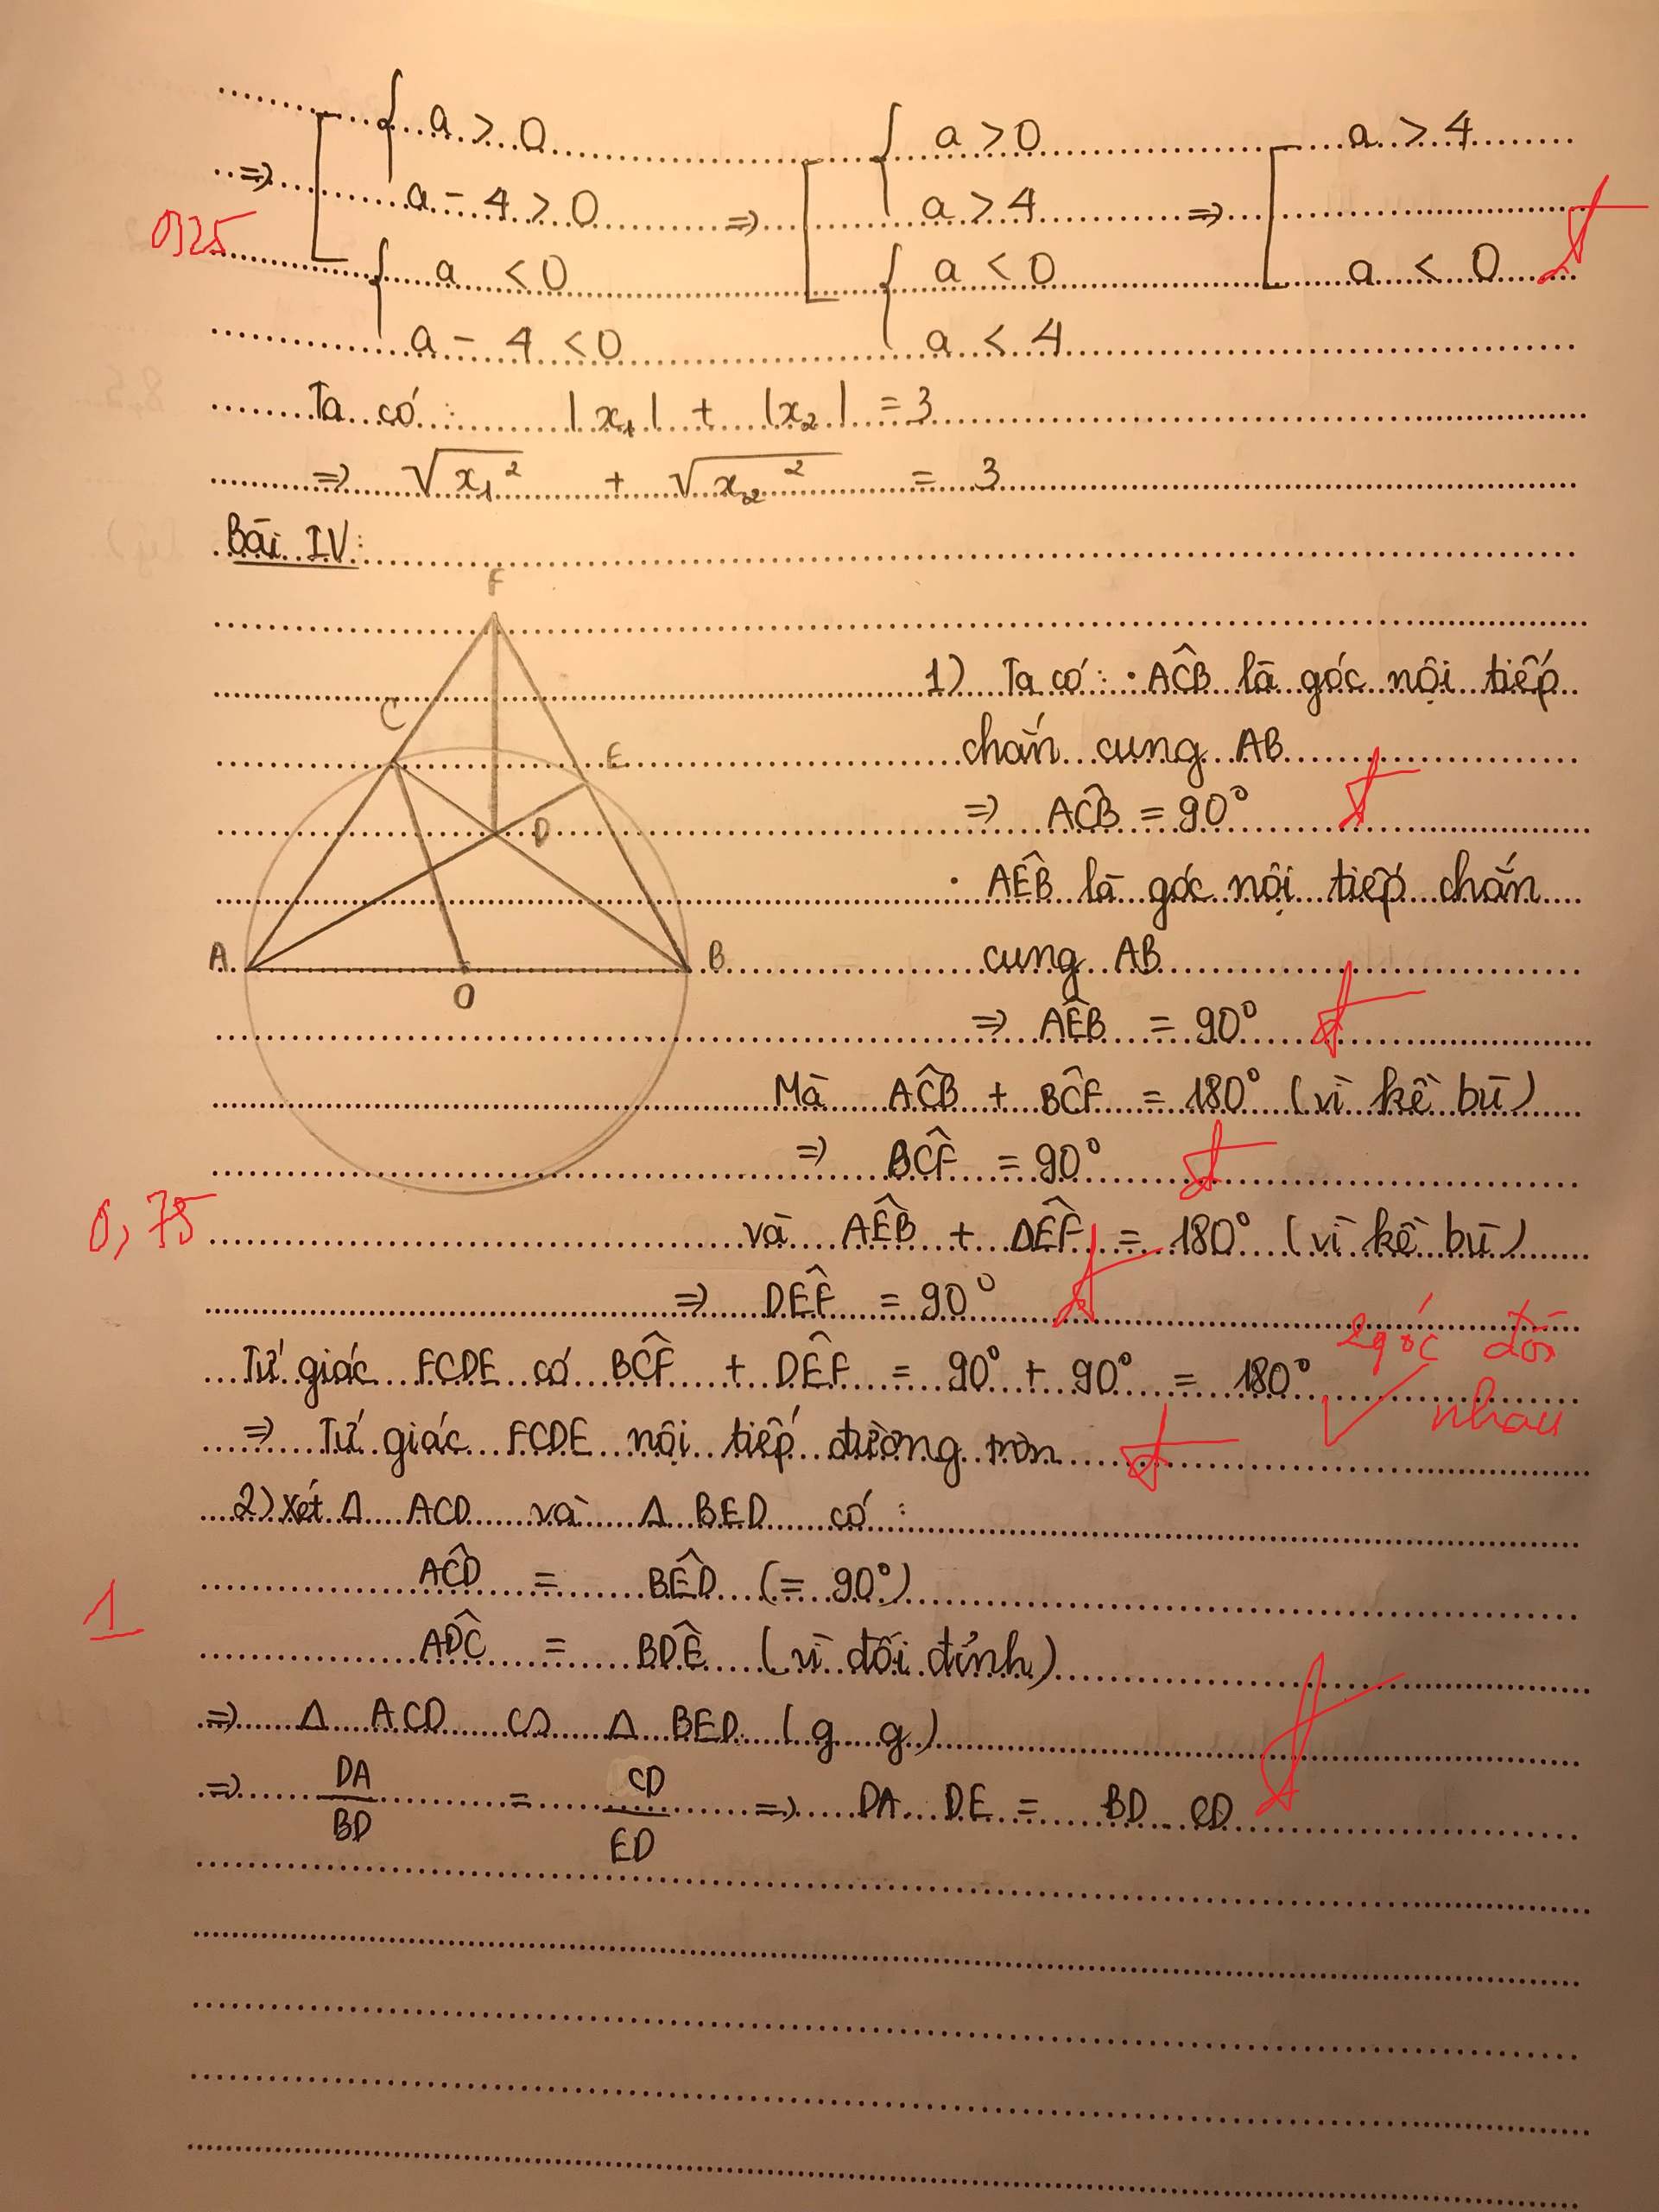 ⇒ [ { a > 0 ; a - 4 > 0 ⇒ [ { a > 0 ; a > 4 ⇒ [ a > 4
0,25
{ a < 0 ; a - 4 < 0 { a < 0 ; a < 4 a < 0
Ta có : |x₁| + |x₂| = 3
⇒ √x₁² + √x₂² = 3
Bài IV:
F
C
E
D
A
B
O
1) Ta có: · AĈB là góc nội tiếp
chắn cung AB
⇒ AĈB = 90°
· AÊB là góc nội tiếp chắn
cung AB
⇒ AÊB = 90°
Mà AĈB + BĈF = 180° (vì kề bù)
⇒ BĈF = 90°
0,75
và AÊB + DÊF = 180° (vì kề bù)
⇒ DÊF = 90°
Tứ giác FCDE có BĈF + DÊF = 90° + 90° = 180°
2 góc đối
nhau
⇒ Tứ giác FCDE nội tiếp đường tròn
2) Xét Δ ACD và Δ BED có :
AĈD = BÊD (= 90°)
1
AD̂C = BD̂E (vì đối đỉnh)
⇒ Δ ACD ∽ Δ BED (g.g)
⇒ DA/BD = CD/ED ⇒ DA. DE = BD . CD